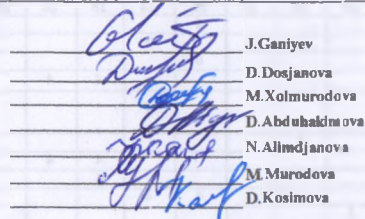 J.Ganiyev
D.Dosjanova
M.Xolmurodova
D.Abduhakimova
N.Alimdjanova
M.Murodova
D.Kosimova